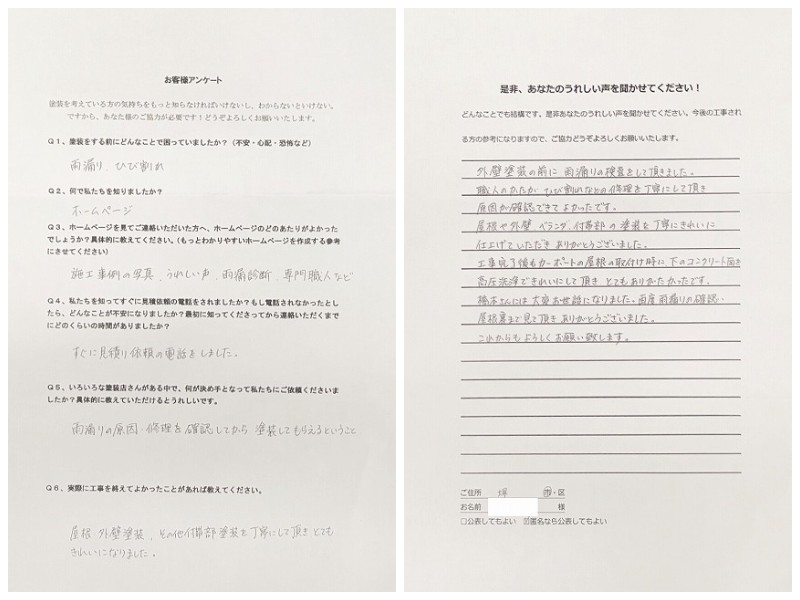 お客様アンケート
塗装を考えている方の気持ちをもっと知らなければいけないし、わからないといけない。
ですから、あなた様のご協力が必要です！どうぞよろしくお願いいたします。
Q１、塗装をする前にどんなことで困っていましたか？（不安・心配・恐怖など）
雨漏り、ひび割れ
Q２、何で私たちを知りましたか？
ホームページ
Q３、ホームページを見てご連絡いただいた方へ、ホームページのどのあたりがよかった
でしょうか？具体的に教えてください。（もっとわかりやすいホームページを作成する参考
にさせてください）
施工事例の写真、うれしい声、雨漏診断、専門職人など
Q４、私たちを知ってすぐに見積依頼の電話をされましたか？もし電話されなかったとし
たら、どんなことが不安になりましたか？最初に知ってくださってから連絡いただくまで
にどのくらいの時間がありましたか？
すぐに見積り依頼の電話をしました。
Q５、いろいろな塗装店さんがある中で、何が決め手となって私たちにご依頼くださいま
したか？具体的に教えていただけるとうれしいです。
雨漏りの原因・修理を確認してから 塗装してもらえるということ
Q６、実際に工事を終えてよかったことがあれば教えてください。
屋根・外壁塗装、その他付帯部塗装を丁寧にして頂き とても
きれいになりました。
是非、あなたのうれしい声を聞かせてください！
どんなことでも結構です。是非あなたのうれしい声を聞かせてください。今後の工事され
る方の参考になりますので、ご協力どうぞよろしくお願いいたします。
外壁塗装の前に 雨漏りの検査をして頂きました。
職人のかたが ひび割れなどの修理を丁寧にして頂き
原因が確認できてよかったです。
屋根や外壁、ベランダ、付帯部の塗装を丁寧にきれいに
仕上げていただき ありがとうございました。
工事完了後もカーポートの屋根の取付け時に 下のコンクリート面を
高圧洗浄できれいにして頂き とてもありがたかったです。
橋本さんには大変お世話になりました。再度雨漏りの確認・
屋根裏まで見て頂き ありがとうございました。
これからもよろしくお願い致します。
ご住所 堺 市・区
お名前 様
□公表してもよい ☑匿名なら公表してもよい